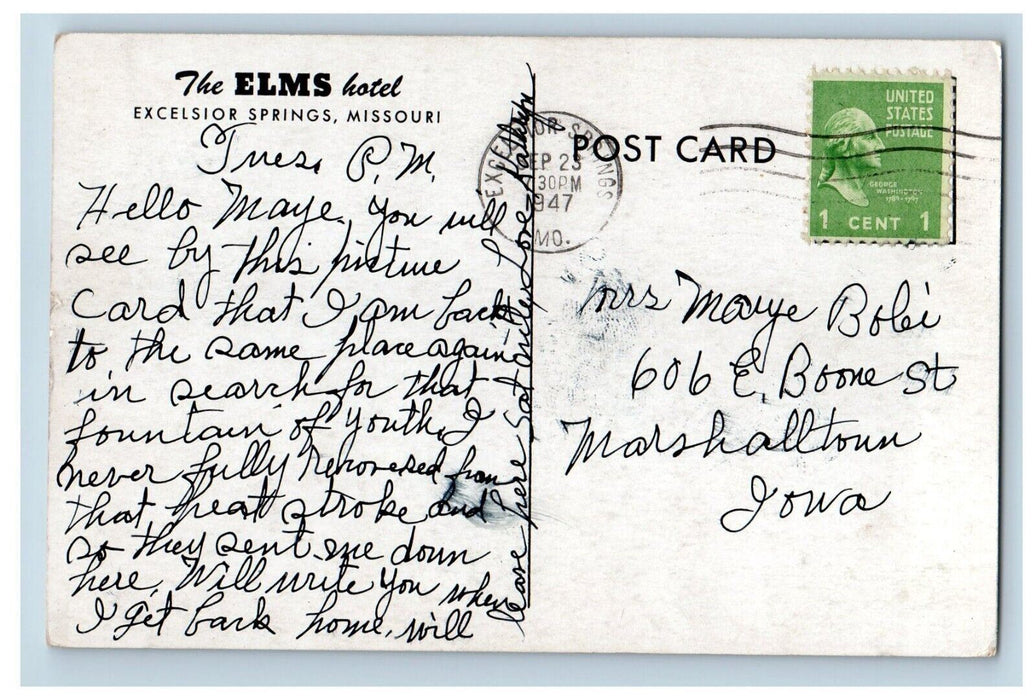 The ELMS hotel
EXCELSIOR SPRINGS, MISSOURI
Tues. P.M.
Hello Maye, you will
see by this picture
Card that I am back
to the same place again
in search for that
fountain of youth, I
never fully recovered from
that heat stroke and
so they sent me down
here, Will write you when
I get back home, will
leave here Sat
Love Kathryn
POST CARD
EXCELSIOR SPRINGS
SEP 23
30PM
1947
MO.
UNITED
STATES
POSTAGE
GEORGE
WASHINGTON
1789-1797
1 CENT 1
Mrs Maye Bobi
606 E. Boone St
Marshalltown
Iowa